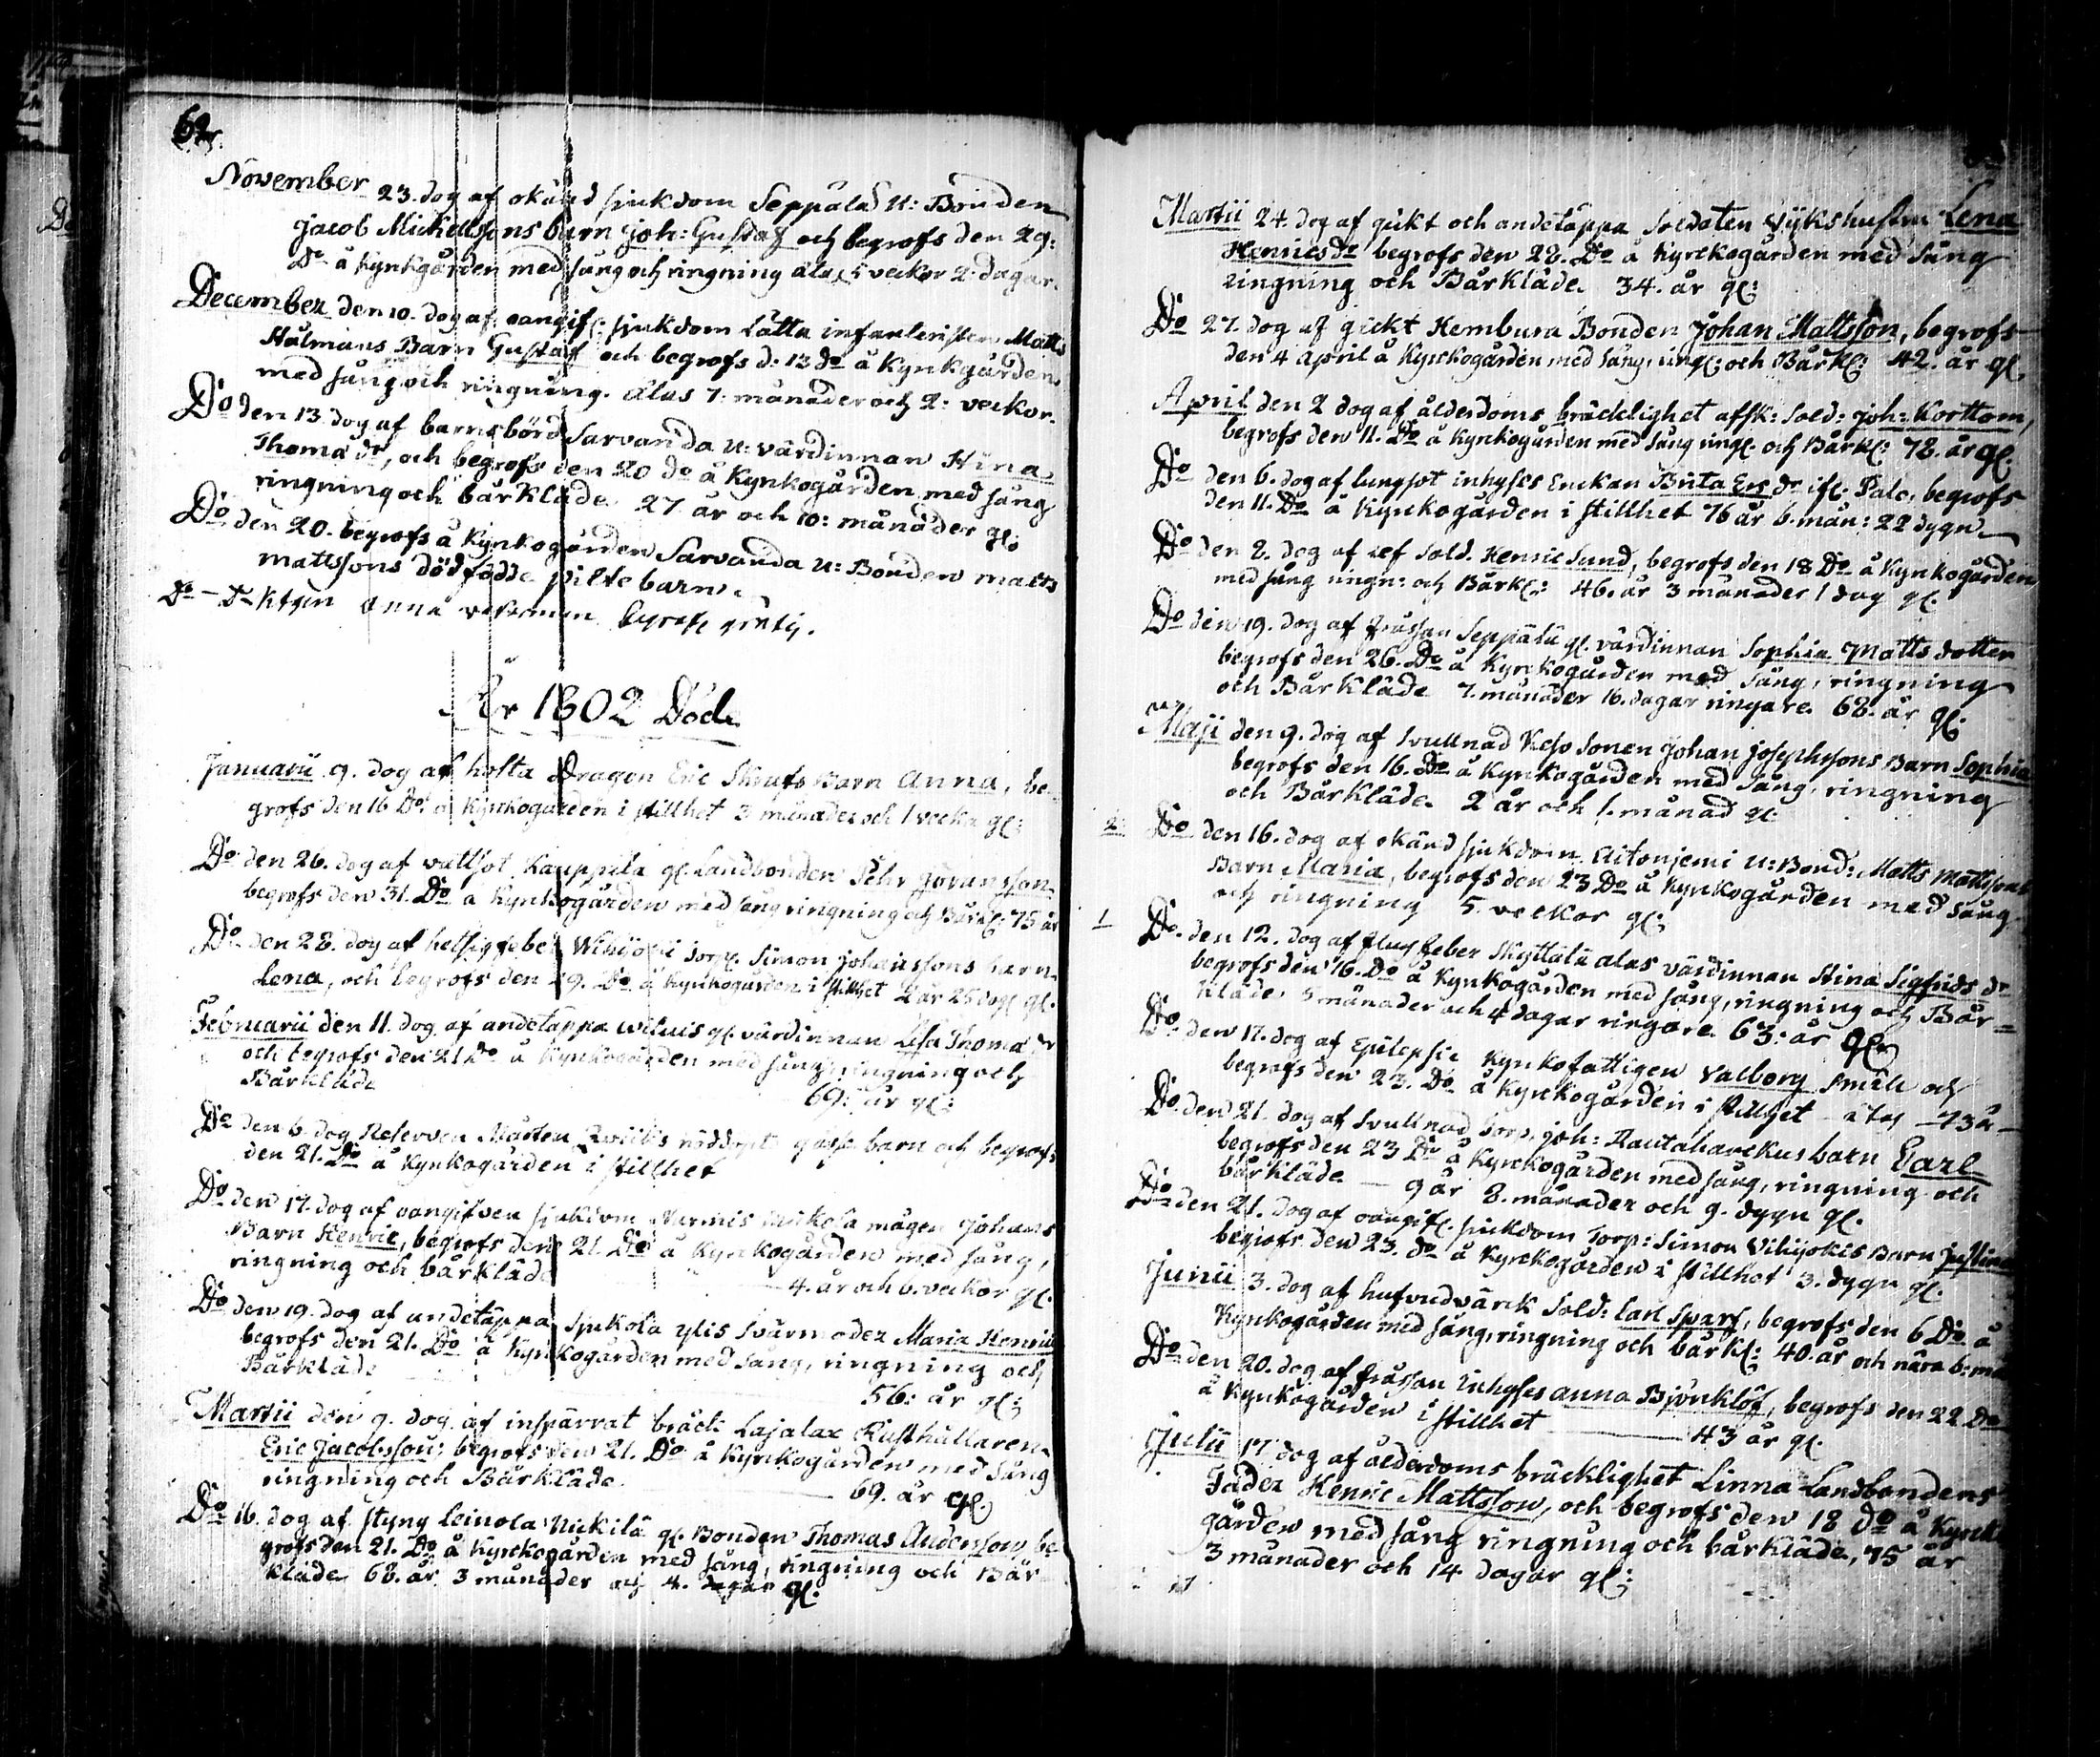 62.
November 23. dog af okänd sjukdom Seppälä U: Bonden
Jacob Mickelssons barn Joh: Gustaf och begrofs den 29:
Do å Kyrkgården med sång och ringning alas 5 veckor 2. dagar.
December den 10. dog af oangif: sjukdom Lätta infanteristen Matts
Hälmans Barn Gustaf och begrofs d: 13 do å Kyrkgården
med sång och ringning. Alas 7: månader och 2: veckor.
Do den 13. dog af barnsbörd Sarvanda U: värdinnan Stina
Thomæ dr, och begrofs den 20 do å Kyrkogården med sång
ringning och bårkläde 27. år och 10: månader gl:
Do den 20. begrofs å Kyrkogården Sarvanda U: Bonden Matts
Mattssons dödfödde piltebarn.
Do - Do Anna begrofs gratis.
År 1802 Döde
Januarii 9. dog af hosta Dragon Eric Barn Anna, be-
grofs den 16 Do å Kyrkogården i stillhet 3 månader och 1 vecka gl:
Do den 26. dog af vattsot Kauppila gl. Landbonden Pehr Göransson
begrofs den 31. Do å Kyrkogården med sång ringning och Bårkl: 75 år
Do den 28. dog af hetsig feber Torp. Simon Johanssons barn
Lena, och begrofs den 29. Do å Kyrkogården i stillhet 2 år 25 dag. gl.
Februarii den 11. dog af andetäppa gl. värdinnan Lisa Thomæ dr
och begrofs den 21 Do å Kyrkogården med sång, ringning och
Bårkläde 69: år gl:
Do den 6. dog Reserven Mårten nöddöpt barn och begrofs
den 21. Do å Kyrkogården i stillhet
Do den 17. dog af oangifven sjukdom Nurmis mågen Johans
Barn Henric, begrofs den 21. Do å Kyrkogården med sång,
ringning och bårkläde 4. år och 6. veckor gl.
Do den 19. dog af andetäppa Sjukola ylis Svärmoder Maria Henrics
begrofs den 21. Do å Kyrkogården med sång, ringning och
Bårkläde 56: år gl:
Martii den 9. dog af inspärrat bråck Lajalax Rusthållaren
Eric Jacobsson: begrofs den 21. Do å Kyrkogården med sång
ringning och Bårkläde 69. år gl.
Do 16. dog af styng Leinola Nickilä gl. Bonden Thomas Andersson, be-
grofs den 21. Do å Kyrkogården med sång, ringning och Bår-
kläde 68. år 3 månader och 4. dagar gl.
Martii 24. dog af gikt och andetäppa Soldaten hustru Lena
Henricsdr begrofs den 28. Do å Kyrckogården med sång
ringning och Bårkläde 34. år gl:
Do 27. dog af gickt Kembura Bonden Johan Mattsson, begrofs
den 4 April å Kyrckogården med sång, ringl: och Bårkl: 42. år gl.
April den 2 dog af ålderdoms bräcklighet afsk: Sold: Joh: Korttom,
begrofs den 11. Do å Kyrkogården med sång ringl. och Bårkl: 78. år gl.
Do den 6. dog af lungsot inhyses Enckan Brita Ers dr Palo, begrofs
den 11. Do å Kyrckogården i stillhet 76 år 6. mån: 22 dygn
Do den 8. dog af Sold. Henric Sund, begrofs den 18 Do å Kyrkogården
med sång ringn: och Bårkl: 46. år 3 månader 1 dag gl.
Do den 19. dog af frässan Seppälä gl. värdinnan Sophia Matts dotter
begrofs den 26. Do å Kyrckogården med sång, ringning
och Bårkläde 7. månader 16. dagar ringare 68. år gl.
Maji den 9. dog af svullnad Kesv sonen Johan Josephssons Barn Sophia
begrofs den 16. Do å Kyrkogården med sång, ringning
och Bårkläde 2 år och 1. månad gl.
2. Do den 16. dog af okänd sjukdom Aitonjemi U: Bond: Matts Mattssons
Barn Maria, begrofs den 23 Do å Kyrkogården med sång
och ringning 5. veckor gl:
1 Do. den 12. dog af flussfeber Skyttälä alas värdinnan Stina Sigfrids dr
begrofs den 16. Do å Kyrkogården med sång, ringning och Bår=
kläde 5 månader och 4 dagar ringare 63: år gl.
Do den 17. dog af Epilepsie Kyrkofattigen Valborg och
begrofs den 23. Do å Kyrckogården i stillhet 73 år
Do den 21. dog af svullnad Torp. Joh: Rautaharckus barn Carl
begrofs den 23 Do å Kyrckogården med sång, ringning och
bårkläde - 9 år 8. månader och 9. dygn gl.
Do den 21. dog af oangifl. sjukdom Torp: Simon Vihijokis Barn Justina
begrofs den 23. do å Kyrckogården i stillhet 3. dygn gl.
Junii 3. dog af hufvudvärck Sold: Carl Sparf, begrofs den 6 Do å
Kyrkogården med sång, ringning och bårkl: 40. år och nära 6: må
Do den 20. dog af frässan inhyses Anna Björklöf, begrofs den 22. Do
å Kyrkogården i stillhet 43 år gl.
Julii 17 dog af ålderdoms bräcklighet Linna Landbondens
Fader Henric Mattsson, och begrofs den 18 do å Kyrcko
gården med sång ringning och bårkläde, 75 år
3 månader och 14 dagar gl: